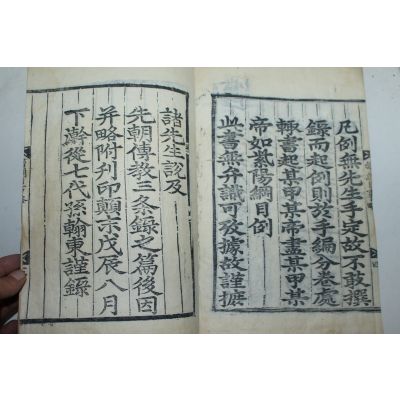 凡例無先生手定故不敢撰
錄而起例則於手編分卷處
輙書起某甲某帝盡某甲某
帝如紫陽綱目例
此書無弁識可攷據故謹摭
諸先生說及
先朝傳教三条錄之篇後因
并略附刋印顛末戊辰八月
下澣從七代孫翰東謹錄